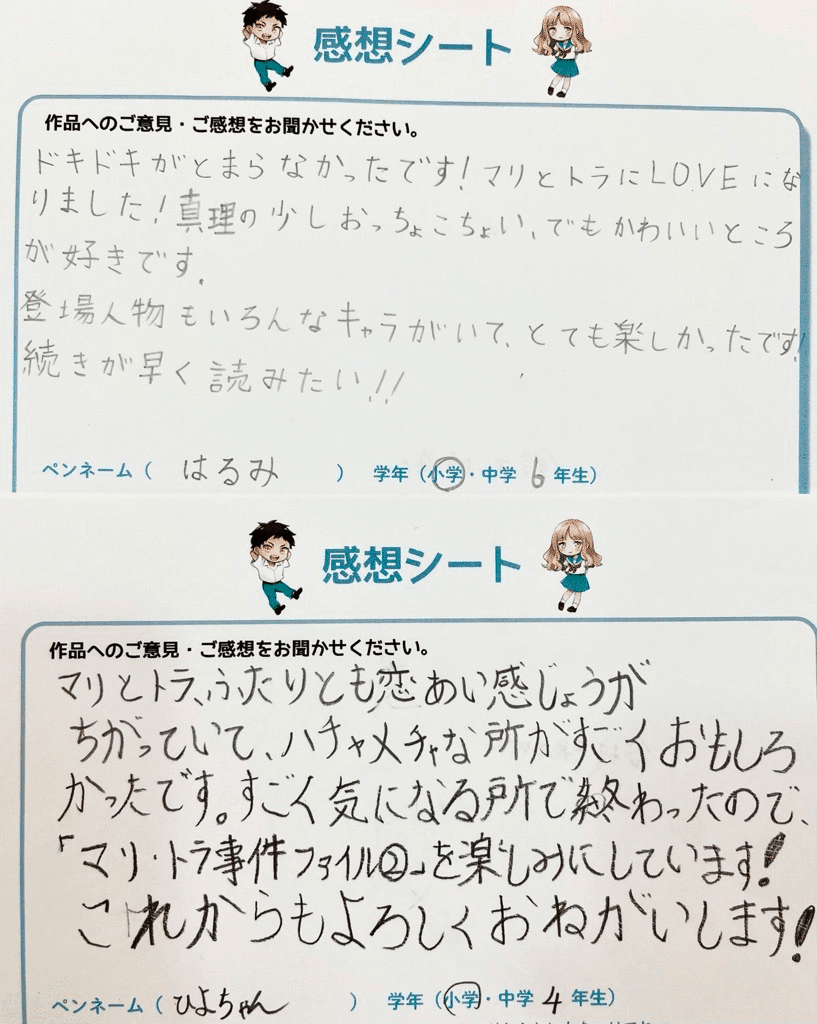 感想シート
作品へのご意見・ご感想をお聞かせください。
ドキドキがとまらなかったです!マリとトラにLOVEにな
りました!真理の少しおっちょこちょい、でもかわいいところ
が好きです。
登場人物もいろんなキャラがいて、とても楽しかったです!
続きが早く読みたい!!
ペンネーム( はるみ ) 学年(小学・中学 6 年生)
感想シート
作品へのご意見・ご感想をお聞かせください。
マリとトラ、ふたりとも恋あい感じょうが
ちがっていて、ハチャメチャな所がすごくおもしろ
かったです。すごく気になる所で終わったので、
「マリ・トラ事件ファイル②」を楽しみにしています!
これからもよろしくおねがいします!
ペンネーム( ひよちゃん ) 学年(小学・中学 4 年生)